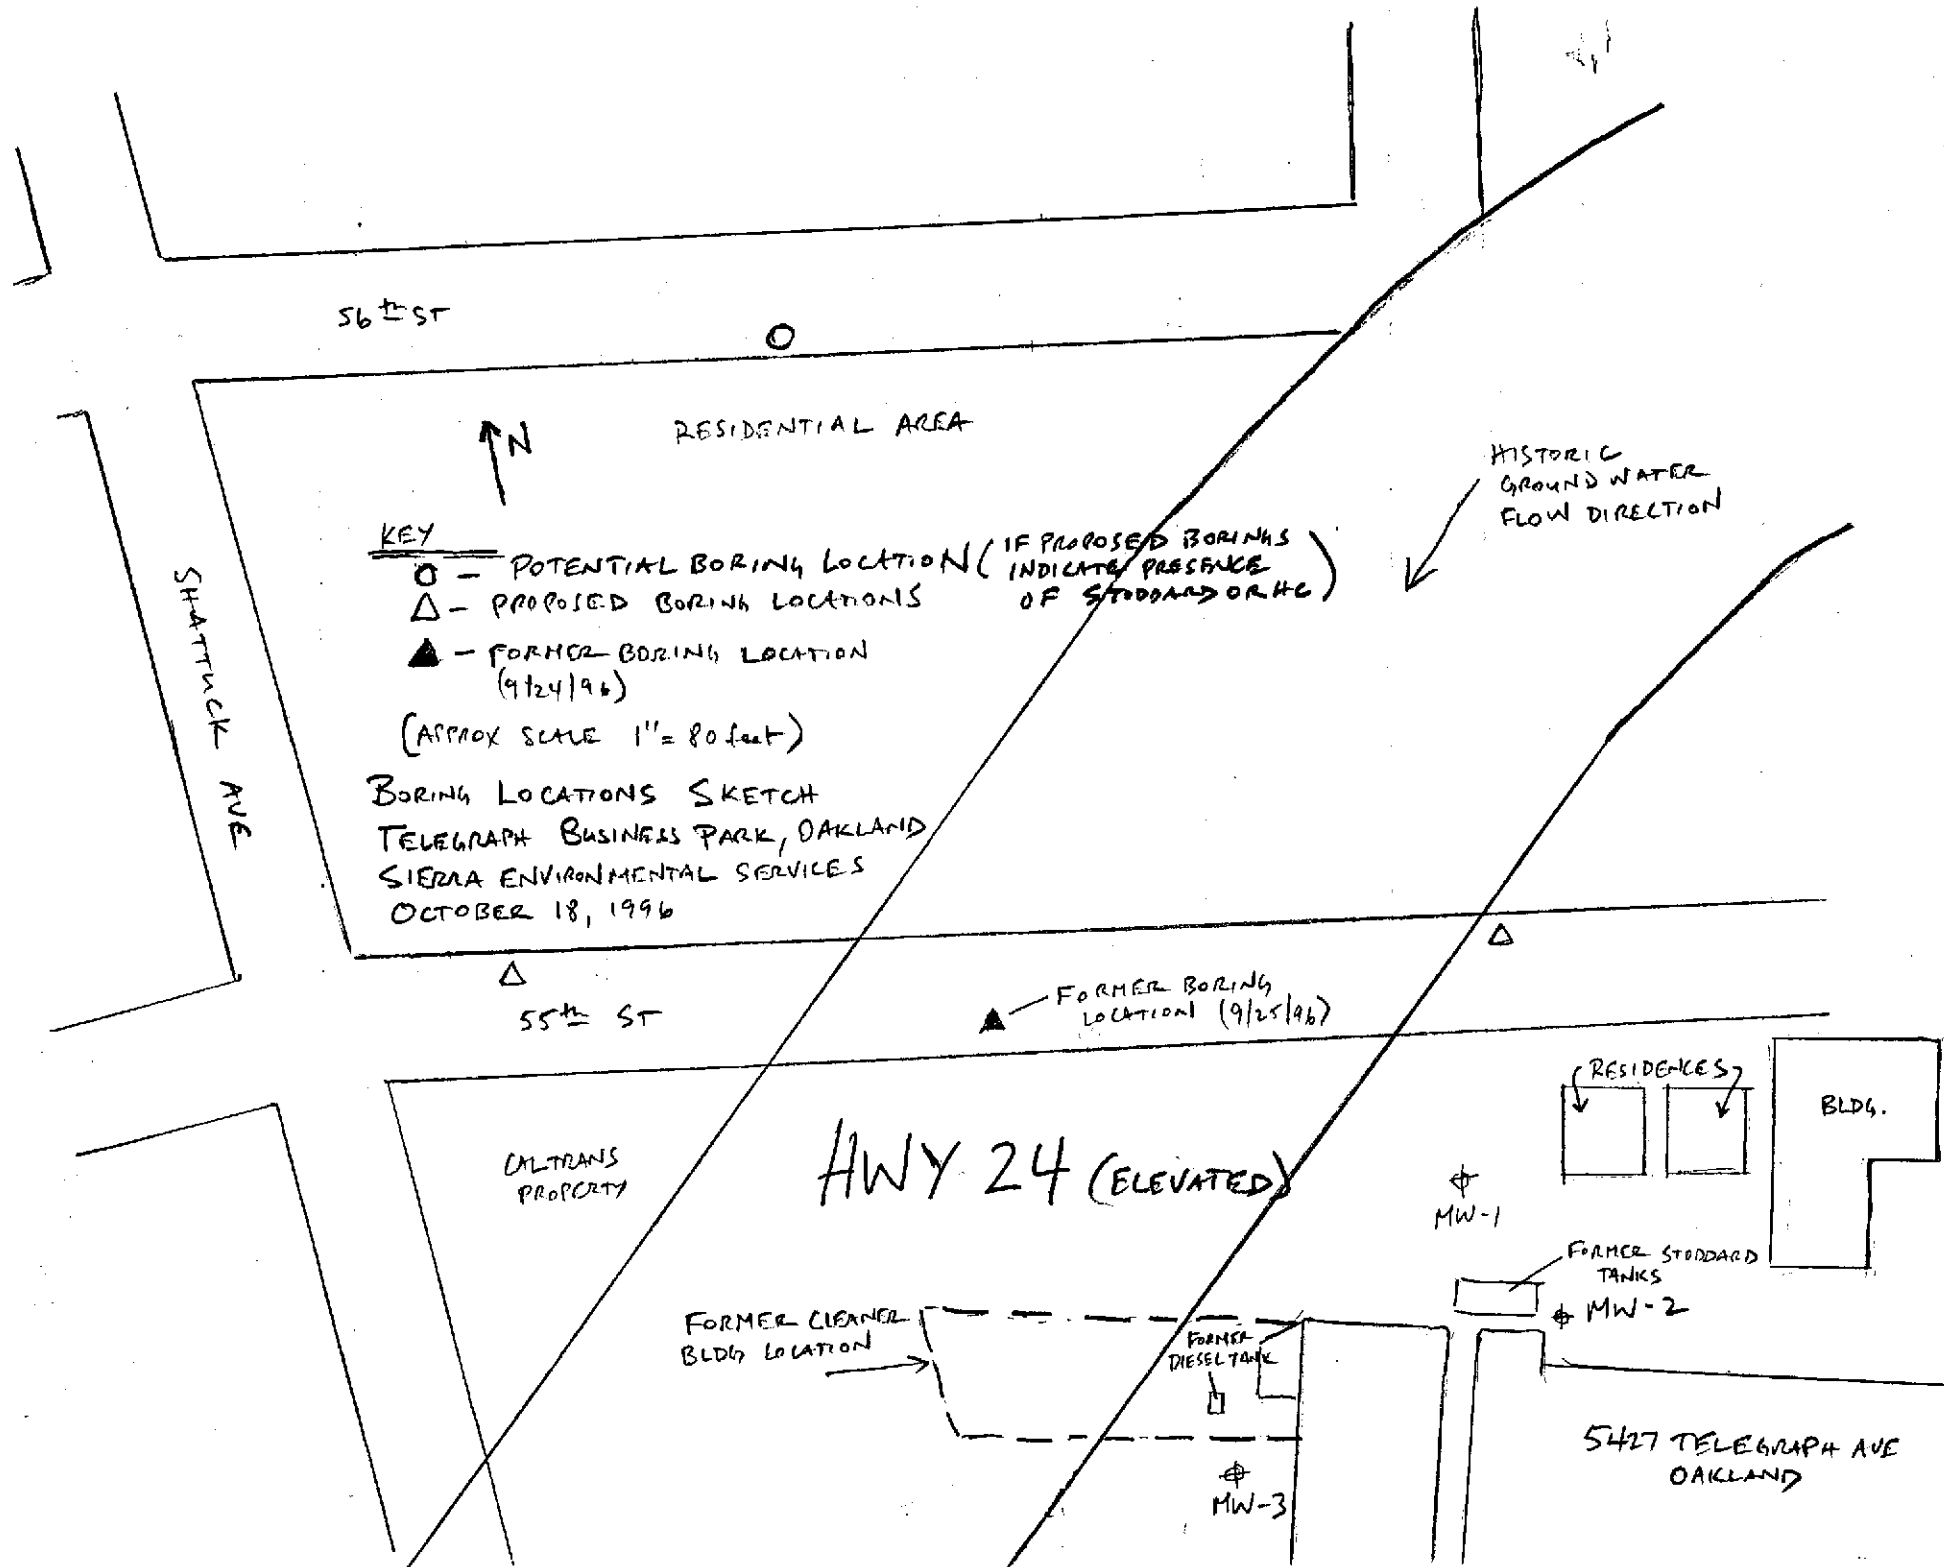 56th ST
N
RESIDENTIAL AREA
HISTORIC
GROUND WATER
FLOW DIRECTION
KEY
O - POTENTIAL BORING LOCATION (IF PROPOSED BORINGS
INDICATE PRESENCE
OF STODDARD OR HC)
△ - PROPOSED BORING LOCATIONS
▲ - FORMER BORING LOCATION
(9/24/96)
(APPROX SCALE 1"= 80 feet)
SHATTUCK AVE
BORING LOCATIONS SKETCH
TELEGRAPH BUSINESS PARK, OAKLAND
SIERRA ENVIRONMENTAL SERVICES
OCTOBER 18, 1996
55th ST
FORMER BORING
LOCATION (9/25/96)
RESIDENCES
BLDG.
CALTRANS
PROPERTY
HWY 24 (ELEVATED)
MW-1
FORMER STODDARD
TANKS
MW-2
FORMER CLEANER
BLDG LOCATION
FORMER
DIESEL TANK
MW-3
5427 TELEGRAPH AVE
OAKLAND